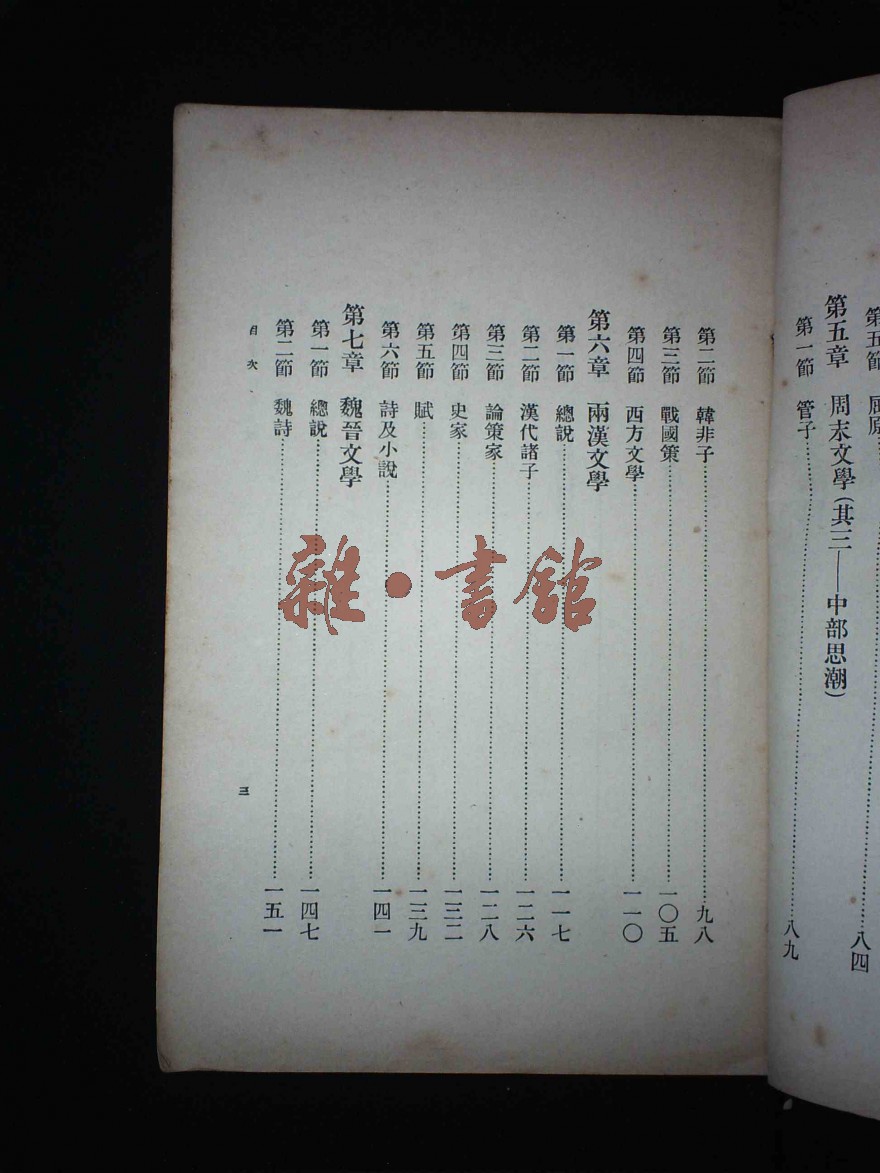 第五節 屈原……八四
第五章 周末文學（其三——中部思潮）
第一節 管子……八九
第二節 韓非子……九八
第三節 戰國策……一〇五
第四節 西方文學……一一〇
第六章 兩漢文學
第一節 總說……一一七
第二節 漢代諸子……一二六
第三節 論策家……一二八
第四節 史家……一三二
第五節 賦……一三九
第六節 詩及小說……一四一
第七章 魏晉文學
第一節 總說……一四七
第二節 魏詩……一五一
目次
三
雜·書館